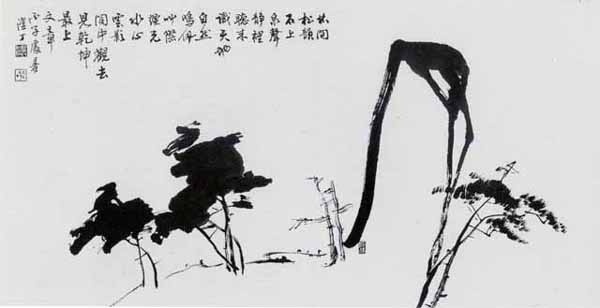 林間
松韻
石上
泉聲
靜裡
聽來
識天地
自然
鳴佩
艸際
煙光
水心
雲影
閒中觀去
見乾坤
最上
文章
丙子處暑